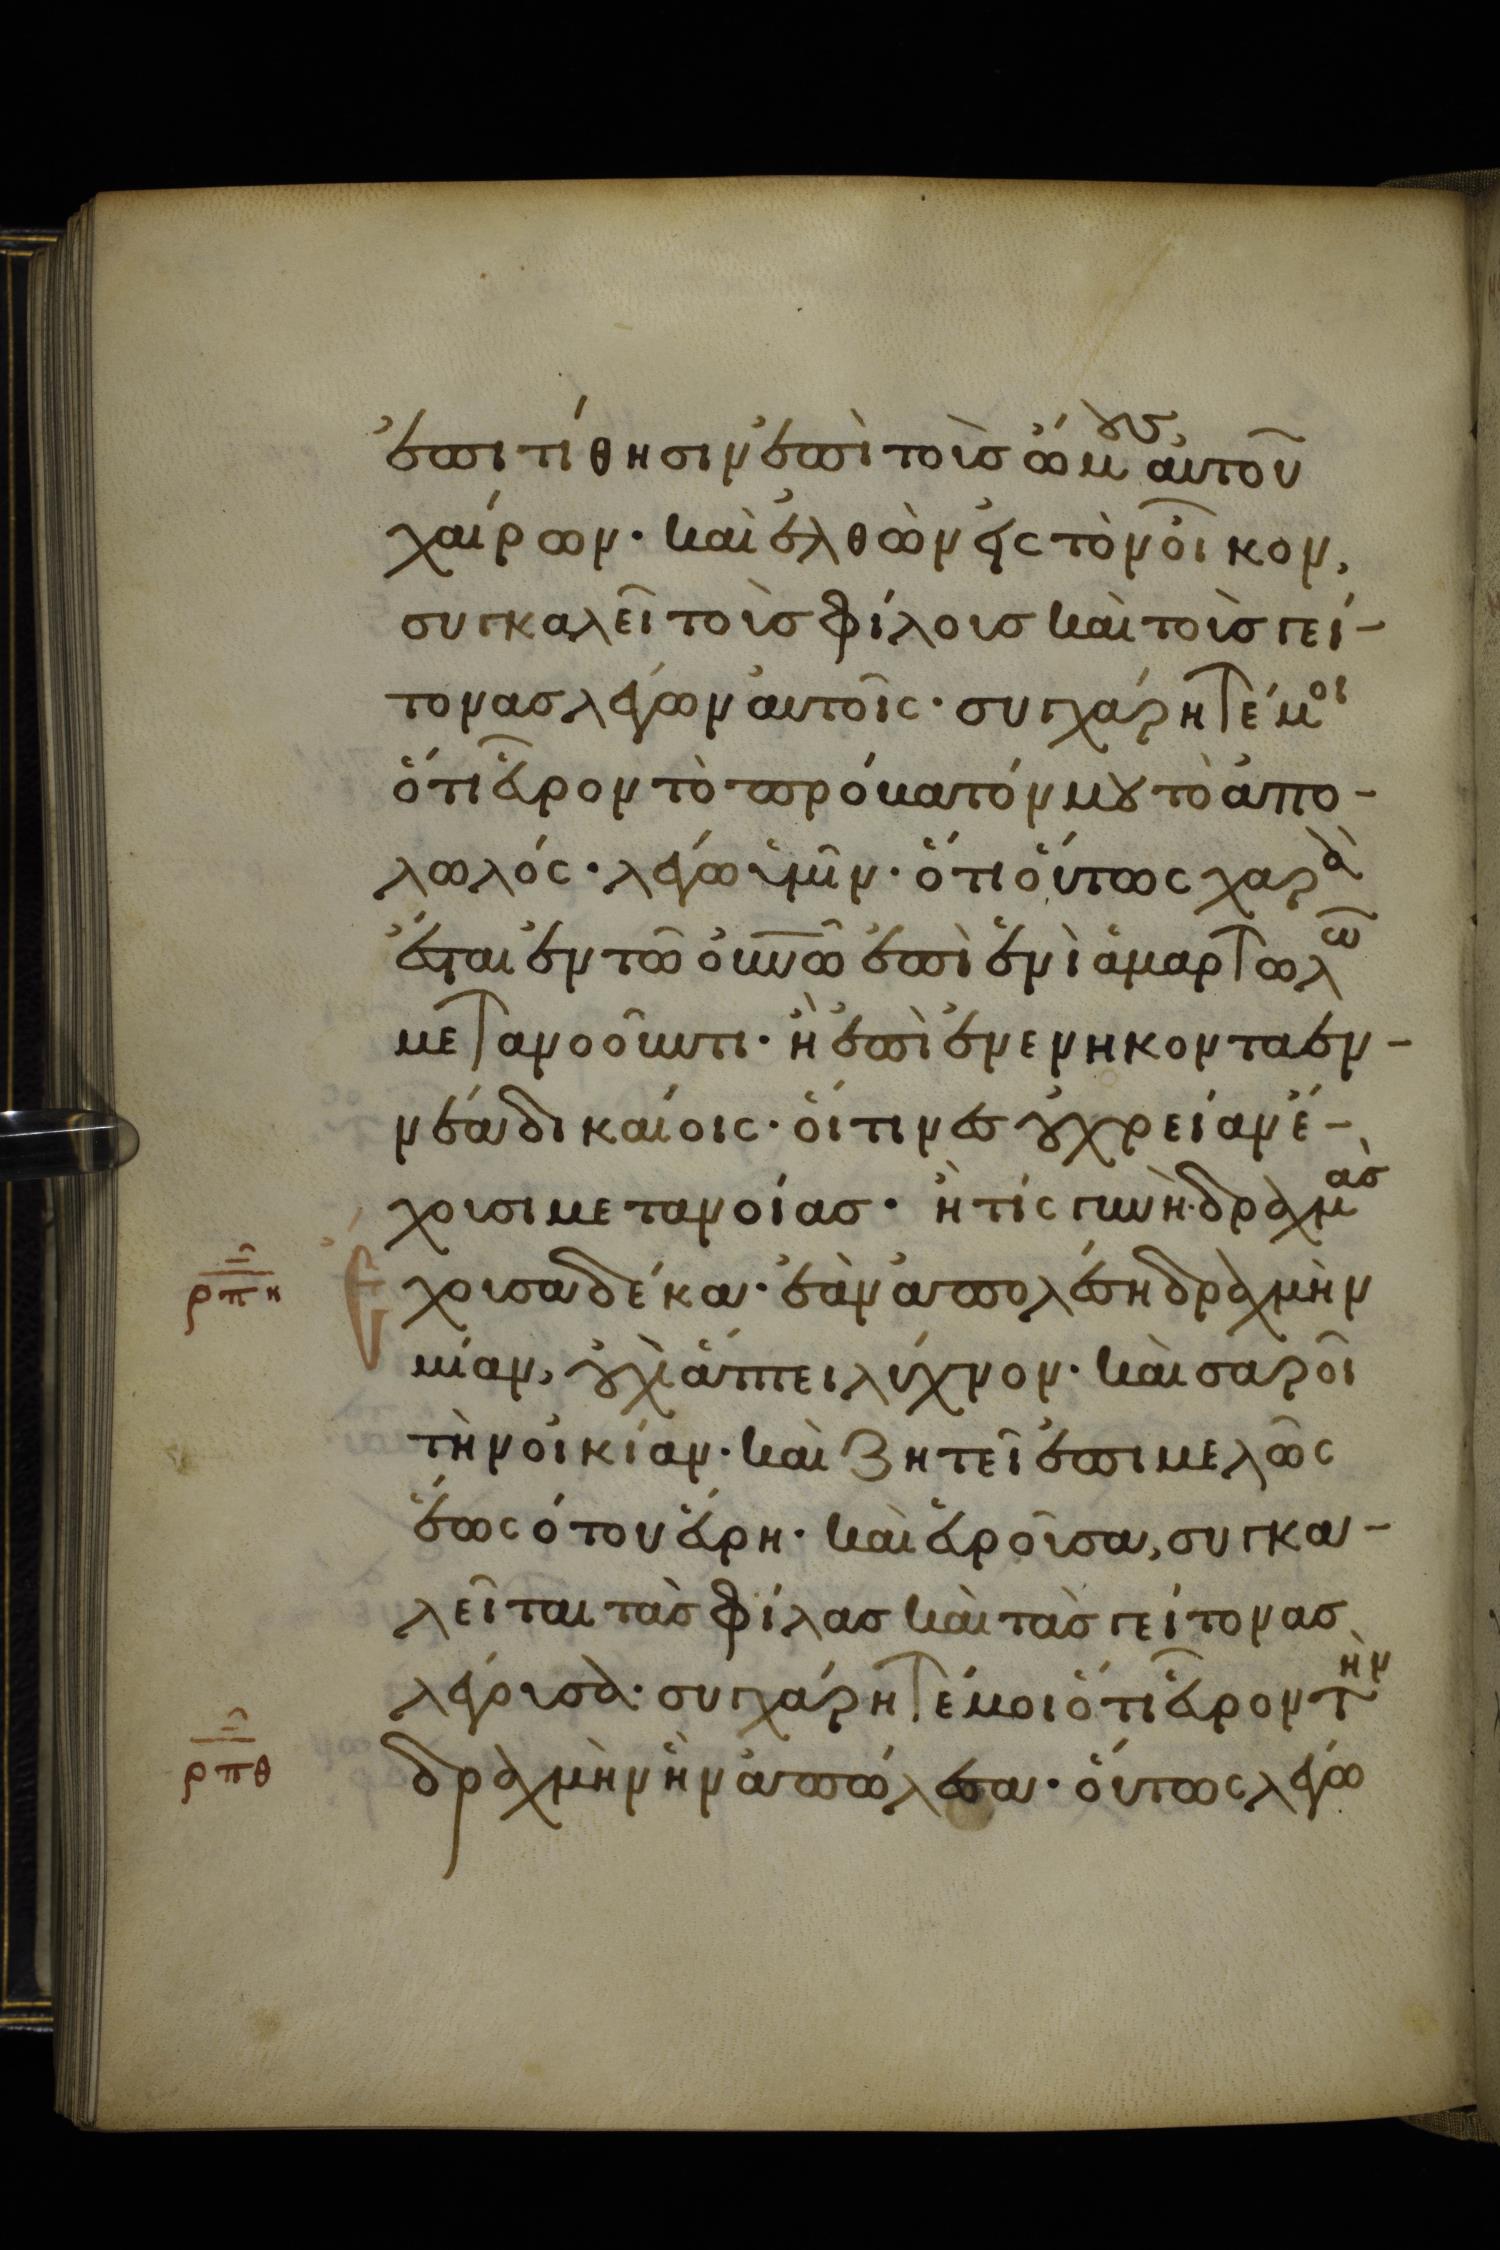 ἐπιτίθησιν ἐπὶ τοὺσ ὤμουσ αὐτοῦ
χαίρων· καὶ ἐλθὼν εἰς τὸν οἶκον,
συγκαλεῖ τοὺσ φίλουσ καὶ τοὺσ γεί-
τονασ λέγων αὐτοῖς· συγχάρητέ μοι
ὅτι εὗρον τὸ πρόβατόν μου τὸ ἀπο-
λωλός· λέγω ὑμῖν· ὅτι οὕτως χαρὰ
ἔσται ἐν τῶ οὐνῶ ἐπὶ ἑνὶ ἁμαρτωλῶ
μετανοοῦντι· ἢ ἐπὶ ἐνενηκονταεν-
νέα δικαίοις· οἵτινεσ οὐ χρείαν ἔ-
χουσι μετανοίασ· ἢ τίς γυνὴ δραχμὰσ
ρπη ἔχουσα δέκα· ἐὰν ἀπολέση δραχμὴν
μίαν, οὐχὶ ἅπτει λύχνον· καὶ σαροῖ
τὴν οἰκίαν· καὶ ζητεῖ ἐπιμελῶς
ἕως ὅτου εὕρη· καὶ εὑροῦσα, συγκα-
λεῖται τὰσ φίλασ καὶ τὰσ γείτονασ
λέγουσα· συγχάρητέ μοι ὅτι εὗρον τὴν
ρπθ δραχμὴν ἣν ἀπώλεσα· οὕτως λέγω